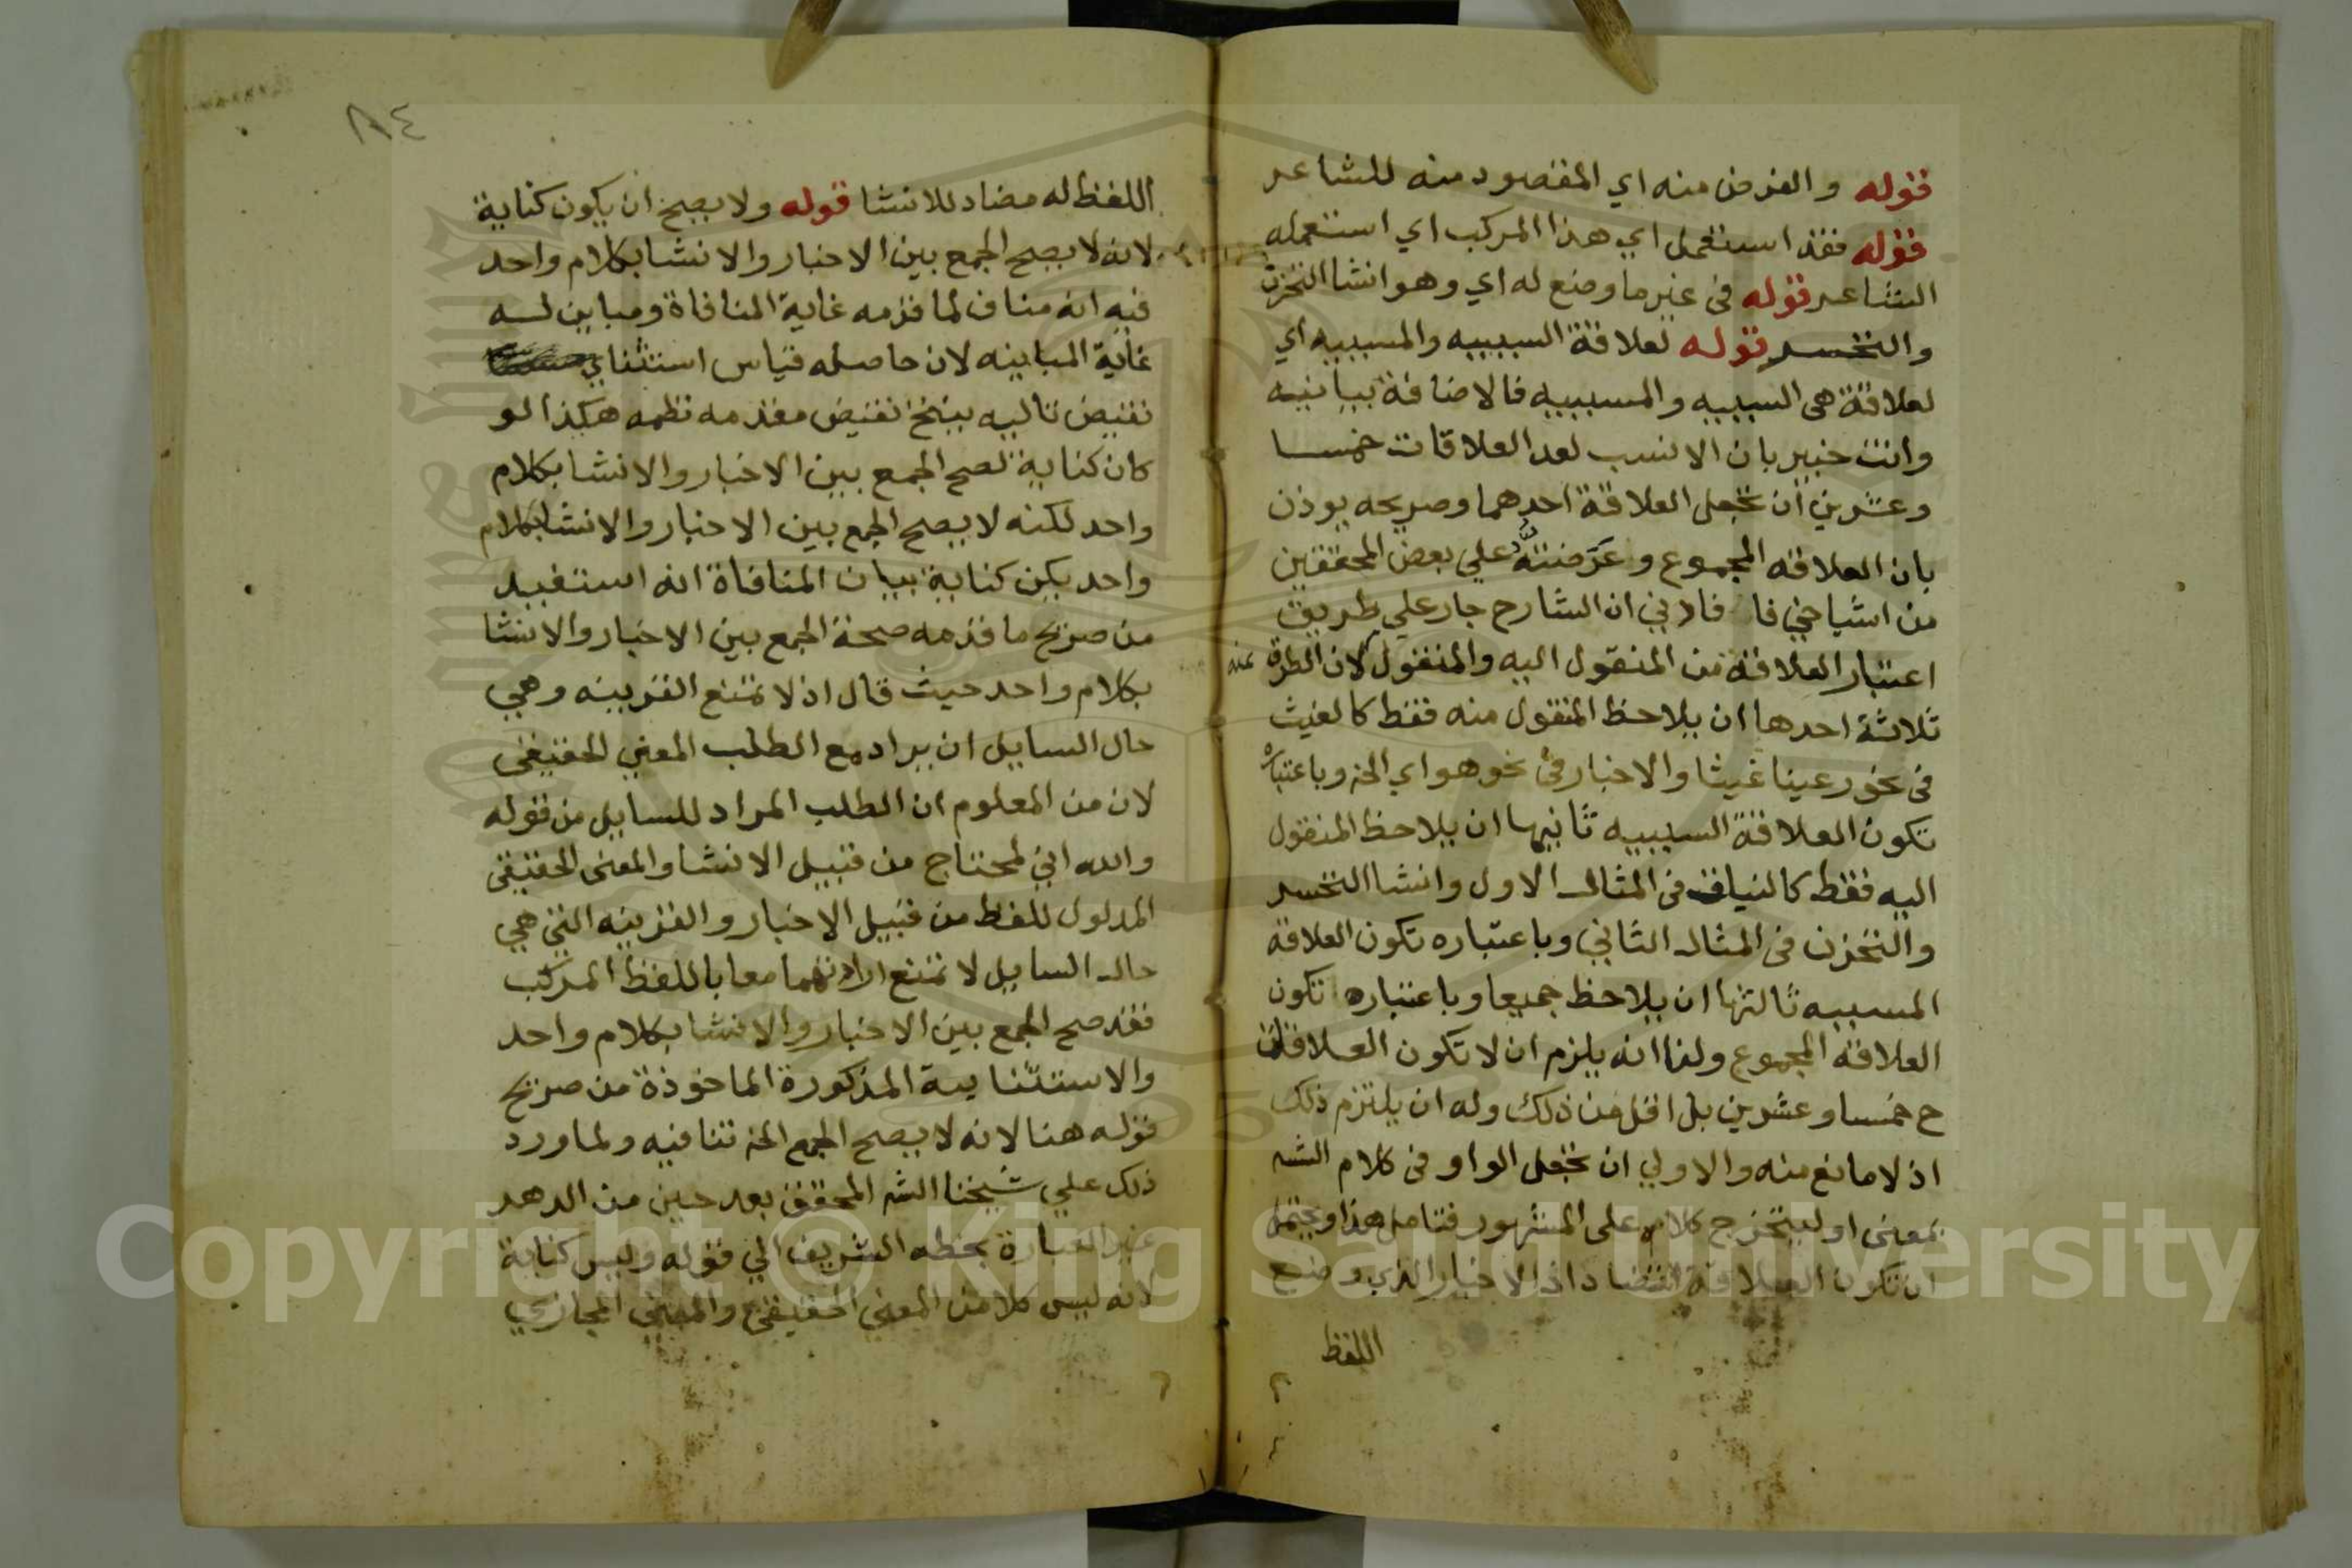 قوله والغرض منه اي المقصود منه للشاعر
قوله فقد استعمل اي هذا المركب اي استعمله
الشاعر قوله في غير ما وضع له اي وهو انشا التحزن
والتحسر قوله لعلاقة السببيه والمسببيه اي
لعلاقة هي السببيه والمسببيه فالاضافة بيانيه
وانت خبير بان الانسب لعد العلاقات خمسا
وعشرين ان تجعل العلاقة احدهما وصريحه يوذن
بان العلاقه المجموع وعرضته علي بعض المحققين
من اشياخي فا فادني ان الشارح جار علي طريق
اعتبار العلاقة من المنقول اليه والمنقول عنه لان الطرق
ثلاثة احدها ان يلاحظ المنقول منه فقط كالغيث
في نحو رعينا غيثا والاخبار في نحو هواي الخ وباعتباره
تكون العلاقة السببيه ثانيها ان يلاحظ المنقول
اليه فقط كالنبات في المثال الاول وانشا التحسر
والتحزن في المثال الثاني وباعتباره تكون العلاقة
المسببيه ثالثها ان يلاحظ جميعا وباعتباره تكون
العلاقة المجموع ولنا انه يلزم ان لا تكون العلاقات
ح خمسا وعشرين بل اقل من ذلك وله ان يلتزم ذلك
اذ لا مانع منه والاولي ان تجعل الواو في كلام الشه
بمعنى او ليتخرج كلامه على المشهور فتامل هذا ويحتمل
ان تكون العلاقة التضاد اذ الاخبار الذي وضع
اللفظ
٨٤
اللفظ له مضاد للانشا قوله ولا يصح ان يكون كناية
لانه لا يصح الجمع بين الاخبار والانشا بكلام واحد
فيه انه مناف لما قدمه غاية المنافاة ومباين له
غاية المباينه لان حاصله قياس استثناي
نقيض تاليه ينتج نقيض مقدمه نظمه هكذا لو
كان كناية لصح الجمع بين الاخبار والانشا بكلام
واحد لكنه لا يصح الجمع بين الاخبار والانشا بكلام
واحد يكن كناية بيان المنافاة انه استفيد
من صريح ما قدمه صحة الجمع بين الاخبار والانشا
بكلام واحد حيث قال اذ لا تمتنع القرينه وهي
حال السايل ان يراد مع الطلب المعني الحقيقي
لان من المعلوم ان الطلب المراد للسايل من قوله
والله اني لمحتاج من قبيل الانشا والمعنى الحقيقي
المدلول للفظ من قبيل الاخبار والقرينه التي هي
حال السايل لا تمتنع ارادتهما معا باللفظ المركب
فقد صح الجمع بين الاخبار والانشا بكلام واحد
والاستثنايية المذكورة الماخوذة من صريح
قوله هنا لانه لا يصح الجمع الخ تنافيه ولما ورد
ذلك علي شيخنا الشه المحقق بعد حين من الدهر
غير العبارة بخطه الشريف الي قوله وليس كناية
لانه ليس كلا من المعني الحقيقي والمعني المجازي
Copyright © King Saud University